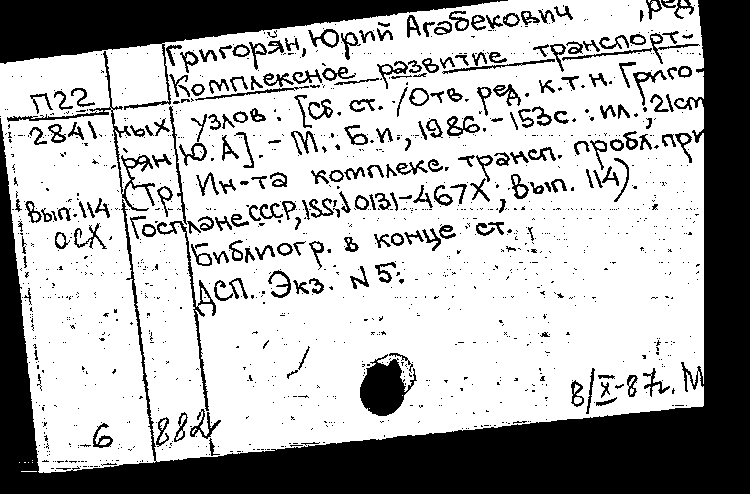 Григорян, Юрий Агабекович, ред.
Комплексное развитие транспорт-
П22
2841
ных узлов: [Сб. ст. / Отв. ред. к.т.н. Григо-
рян Ю.А]. - М.: Б.и., 1986. - 153с. : ил.; 21cm
(Тр. Ин-та комплекс. трансп. пробл. при
Вып. 114
ОСХ
Госплане СССР, ISSN 0131-467X; Вып. 114).
Библиогр. в конце ст.
ДСП. Экз. N 5.
8/X-87г. М
6 882